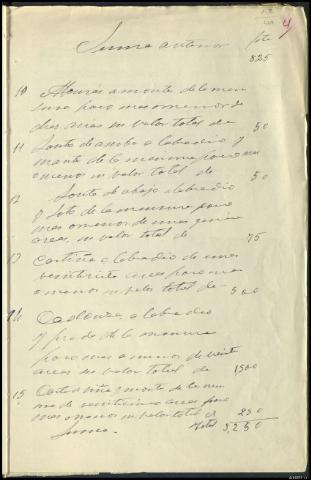 Suma anterior pts
825
10 a monte de la men
sura poco mas o menos de
dies areas su valor total de 50
11 Souto de arriba a labradio y
monte de la mensura poco mas
o menos su valor total de 50
12 Souto de abajo a labradio
y soto de la mensura poco
mas o menos de unas quince
areas, su valor total de 75
13 Cortiña a labradio de unas
areas poco mas
o menos su valor total de 500
14 a labradio
y prado de la mensura
poco mas o menos de veinte
areas su valor total de 1500
15 y monte de la men
areas poco
mas o menos su valor total de 250
Suma. total 3,250